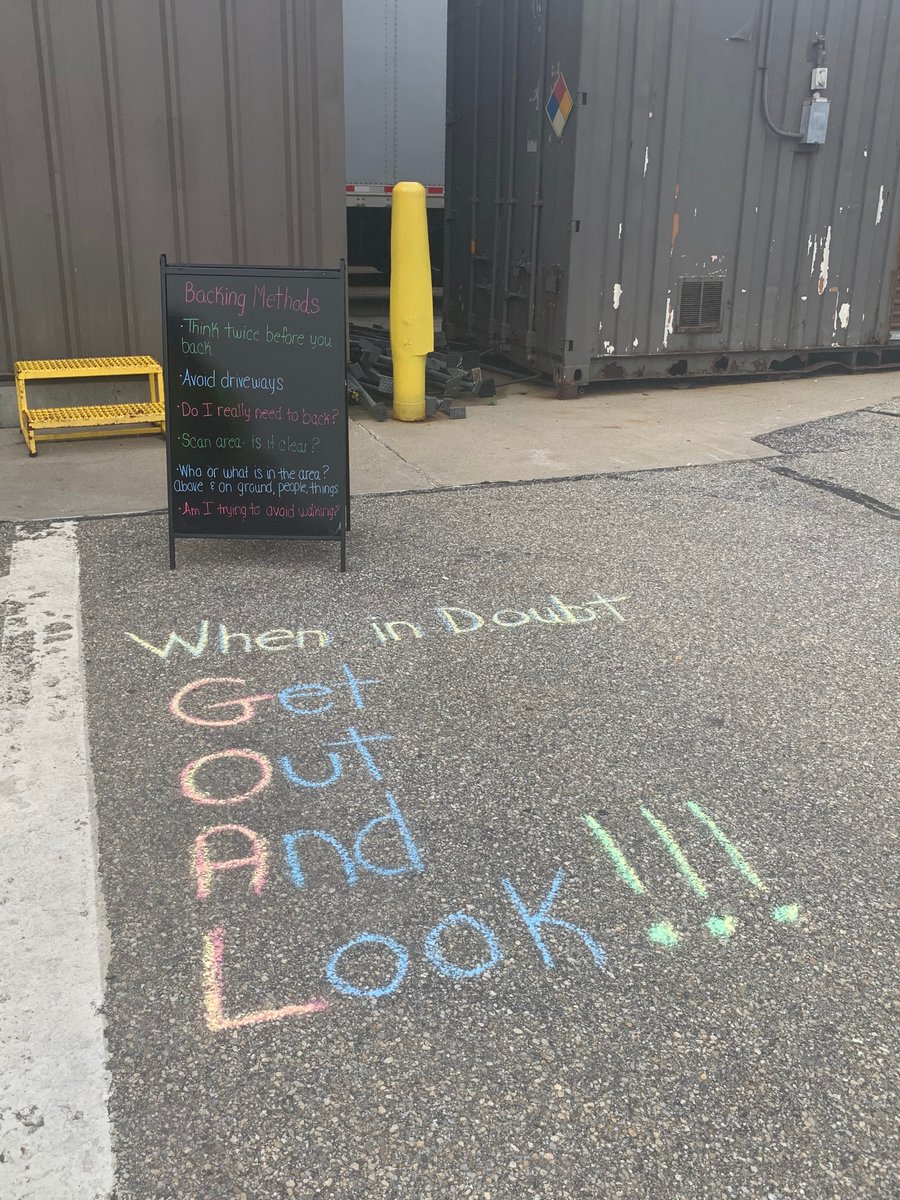 Backing Methods
·Think twice before you
back
·Avoid driveways
·Do I really need to back?
·Scan area- is it clear?
·Who or what is in the area?
above & on ground, people, things
·Am I trying to avoid walking?
When in Doubt
Get
Out
And
Look!!!